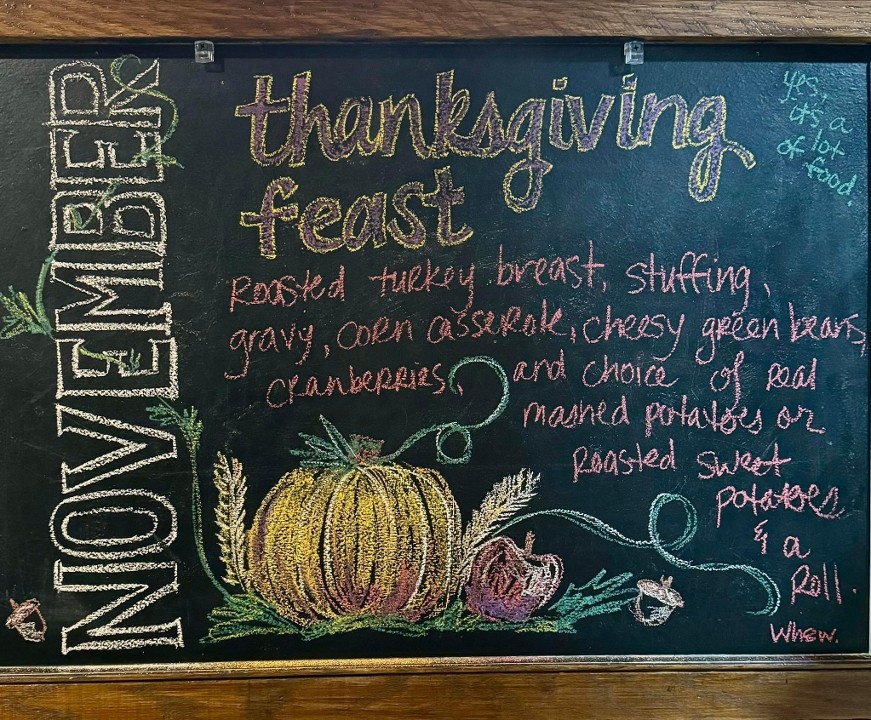 NOVEMBER
thanksgiving
feast
yes,
it's a
lot
of food!
Roasted turkey breast, stuffing,
gravy, corn casserole, cheesy green beans,
cranberries, and choice of real
mashed potatoes or
Roasted sweet
potatoes
& a
Roll.
Whew.